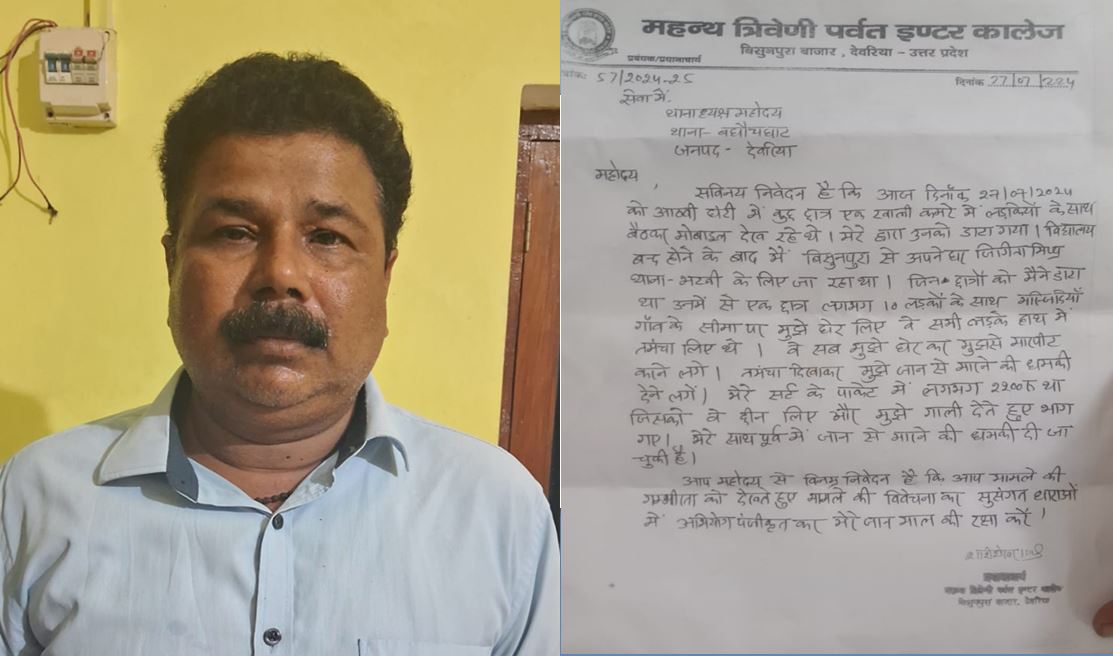 महन्थ त्रिवेणी पर्वत इण्टर कालेज
बिसुनपुरा बाजार, देवरिया - उत्तर प्रदेश
प्रबंधक/प्रधानाचार्य
57/2024-25
दिनांक 27/07/2024
सेवा में,
थानाध्यक्ष महोदय
थाना- बघौचघाट
जनपद - देवरिया
महोदय,
सविनय निवेदन है कि आज दिनाँक 27/07/2024
को आठवी घंटी में कुछ छात्र एक खाली कमरे में लड़कियों के साथ
बैठकर मोबाइल देख रहे थे। मेरे द्वारा उनको डाटा गया। विद्यालय
बन्द होने के बाद मैं बिसुनपुरा से अपने घर जिगिना मिश्र
थाना- भटनी के लिए जा रहा था। जिन छात्रों को मैने डाटा
था उनमें से एक छात्र लगभग 10 लड़कों के साथ
गाँव के सीमा पर मुझे घेर लिए वे सभी लड़के हाथ में
तमंचा लिए थे। वे सब मुझे घेर कर मुझसे मारपीट
करने लगे। तमंचा दिखाकर मुझे जान से मारने की धमकी
देने लगे। मेरे सर्ट के पाकेट में लगभग 2200 था
जिसको वे छीन लिए और मुझे गाली देते हुए भाग
गए। मेरे साथ पूर्व में जान से मारने की धमकी दी जा
चुकी है।
आप महोदय से विनम्र निवेदन है कि आप मामले की
गम्भीरता को देखते हुए मामले की विवेचना कर सुसंगत धाराओं
में अभियोग पंजीकृत कर मेरे जान माल की रक्षा करें।
प्रधानाचार्य
महन्थ त्रिवेणी पर्वत इण्टर कालेज
बिसुनपुरा बाजार, देवरिया